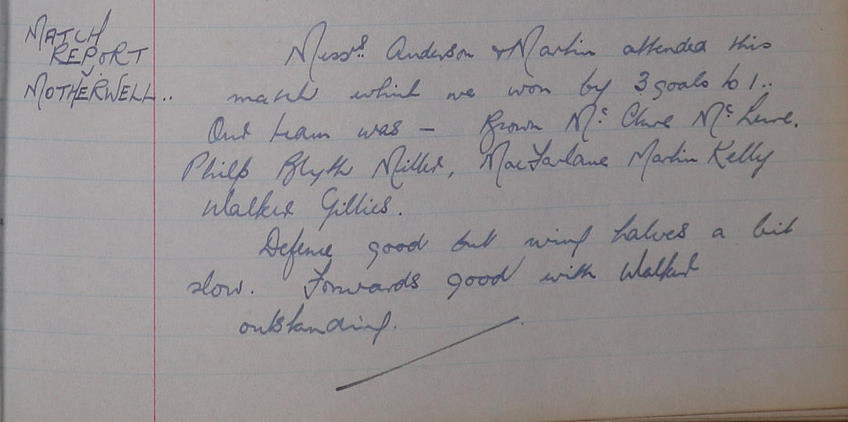 MATCH
REPORT
v
MOTHERWELL..
Messrs. Anderson & Martin attended this
match which we won by 3 goals to 1..
Our team was - Brown Mc Clure Mc Lure.
Philp Blyth Miller, MacFarlane Martin Kelly
Walker Gillies.
Defence good but wing halves a bit
slow. Forwards good with Walker
outstanding.